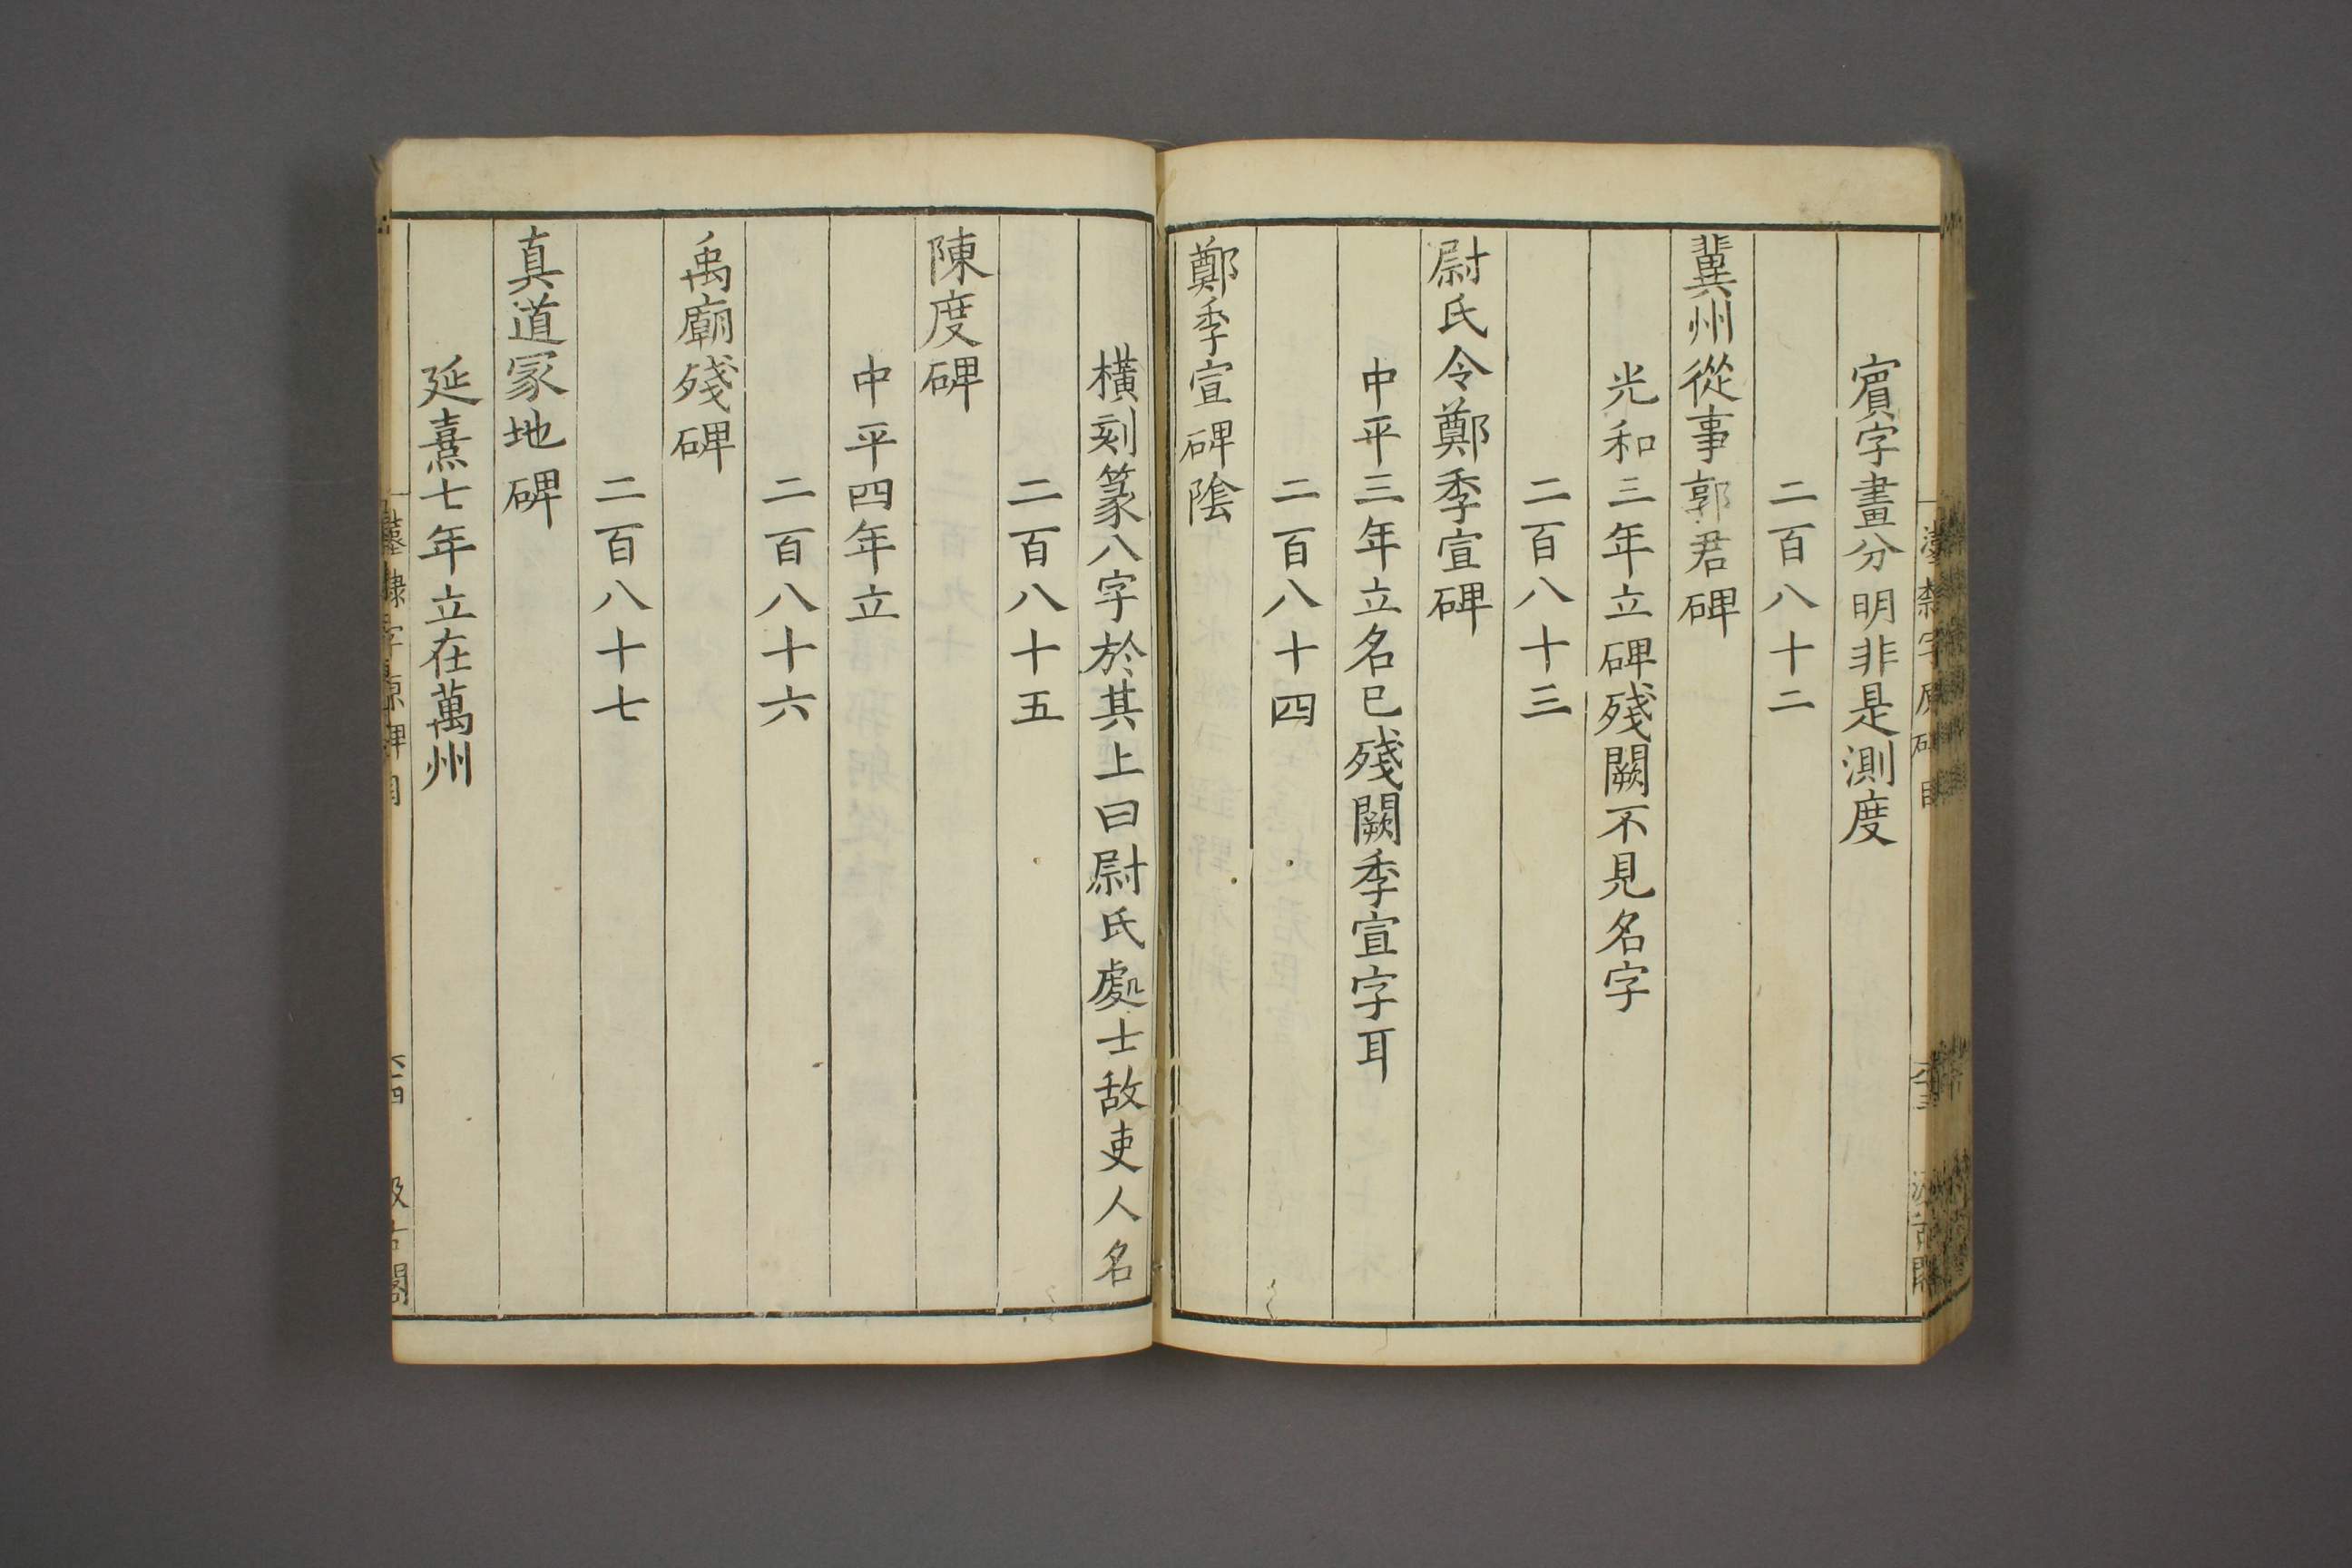 賔字畫分明非是測度
二百八十二
冀州從事郭君碑
光和三年立碑殘闕不見名字
二百八十三
尉氏令鄭季宣碑
中平三年立名已殘闕季宣字耳
二百八十四
鄭季宣碑隂
橫刻篆八字於其上曰尉氏處士故吏人名
二百八十五
陳度碑
中平四年立
二百八十六
禹廟殘碑
二百八十七
真道冢地碑
延熹七年立在萬州